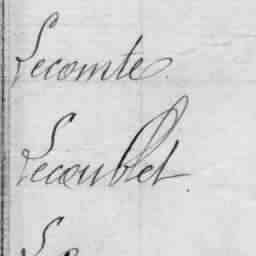 Lecomte
Lecoublet
Le